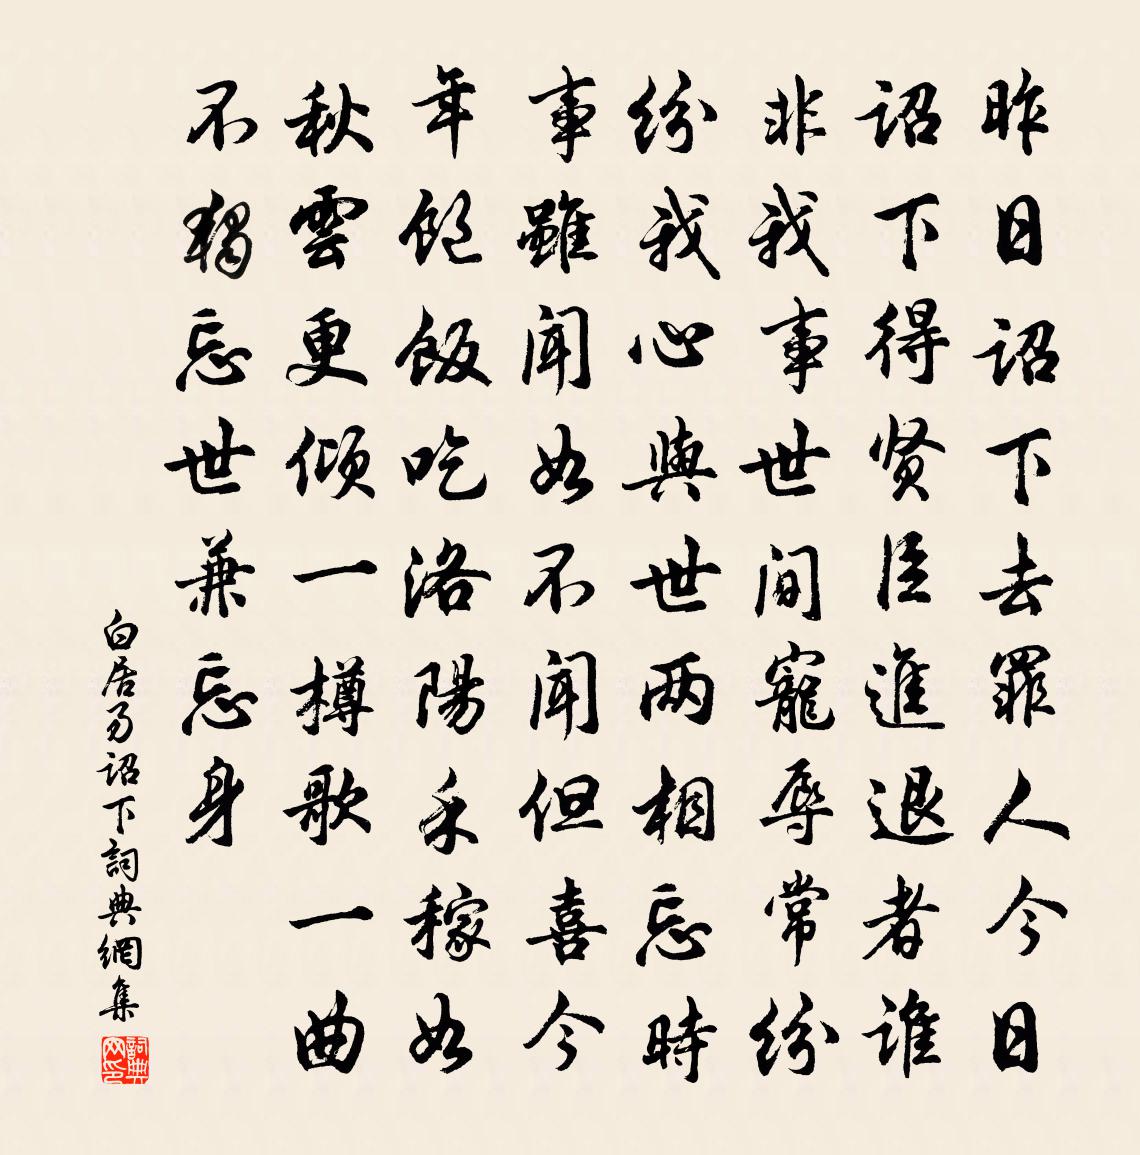 昨日詔下去罪人今日
詔下得贤臣進退者誰
非我事世间寵辱常紛
紛我心與世两相忘時
事雖聞如不聞但喜今
年飽飯吃洛陽禾稼如
秋雲更倾一樽歌一曲
不獨忘世兼忘身
白居易詔下詞典網集
詞典网印